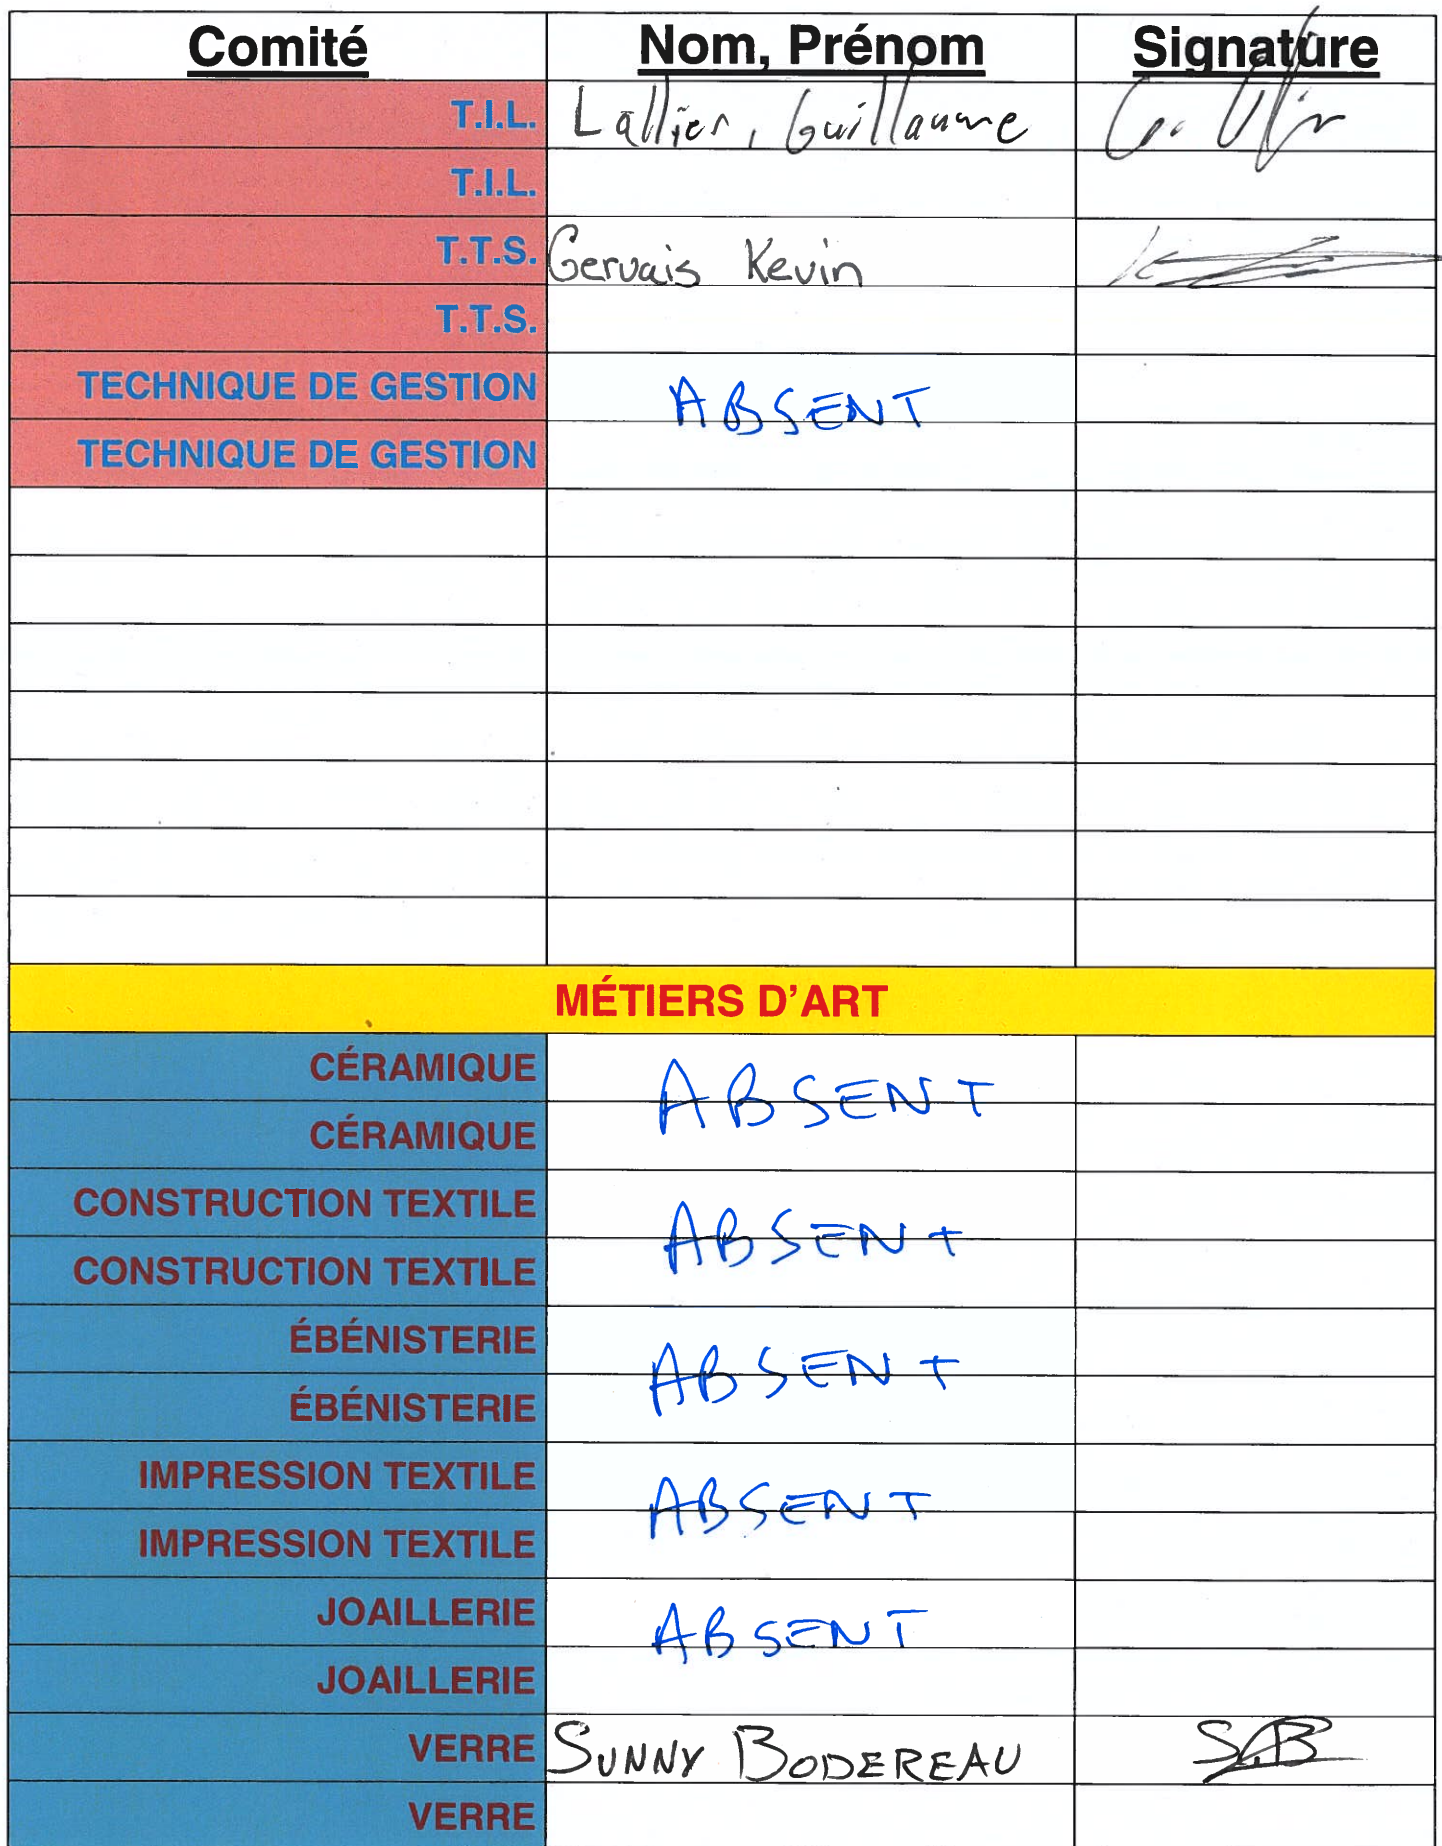 Comité Nom, Prénom Signature
T.I.L. Lallier, Guillaume
T.I.L.
T.T.S. Gervais Kevin
T.T.S.
TECHNIQUE DE GESTION ABSENT
TECHNIQUE DE GESTION
MÉTIERS D'ART
CÉRAMIQUE ABSENT
CÉRAMIQUE
CONSTRUCTION TEXTILE ABSENT
CONSTRUCTION TEXTILE
ÉBÉNISTERIE ABSENT
ÉBÉNISTERIE
IMPRESSION TEXTILE ABSENT
IMPRESSION TEXTILE
JOAILLERIE ABSENT
JOAILLERIE
VERRE SUNNY BODEREAU SB
VERRE